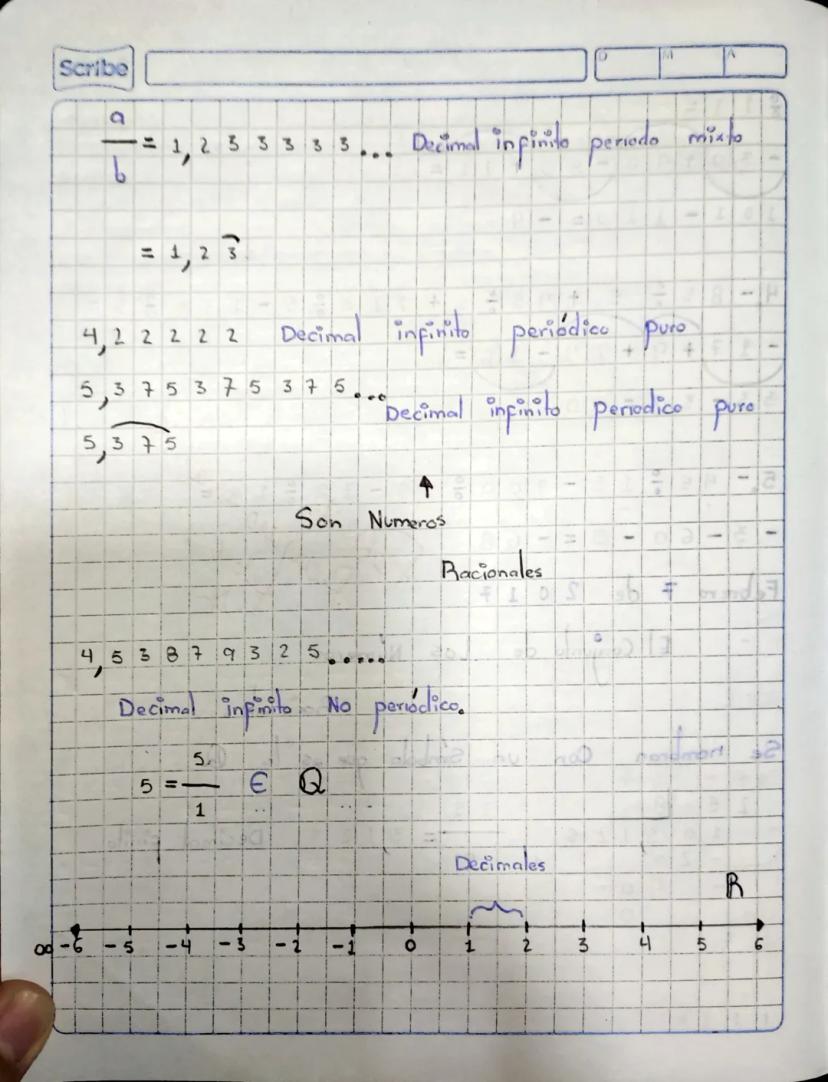 Scribe D M A
a/b = 1,233333... Decimal infinito periodo mixto
= 1,23͡
4,22222 Decimal infinito periódico puro
5,375375375...
Decimal infinito periodico puro
5,375
↑
Son Numeros
Racionales
4,53879325.....
Decimal infinito No periódico.
5 = 5/1 ∈ Q
Decimales
R
∞ -6 -5 -4 -3 -2 -1 0 1 2 3 4 5 6